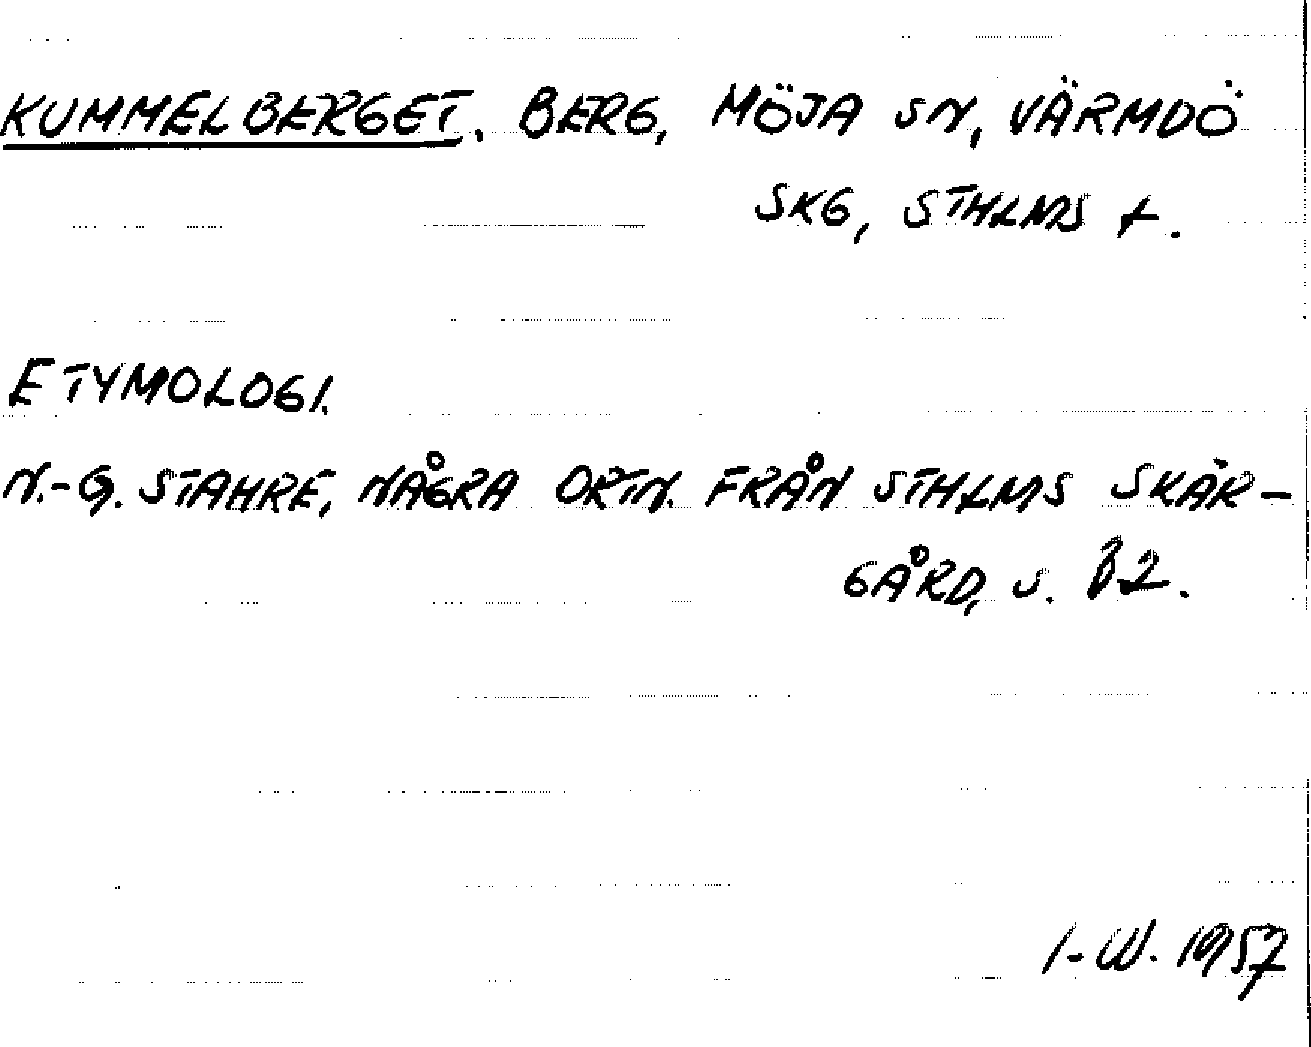 KUMMELBERGET. BERG, MÖJA SN, VÄRMDÖ
SKG, STHLMS L.
ETYMOLOGI.
N.-G. STAHRE, NÅGRA ORTN. FRÅN STHLMS SKÄR-
GÅRD, S. 82.
I-W. 1957